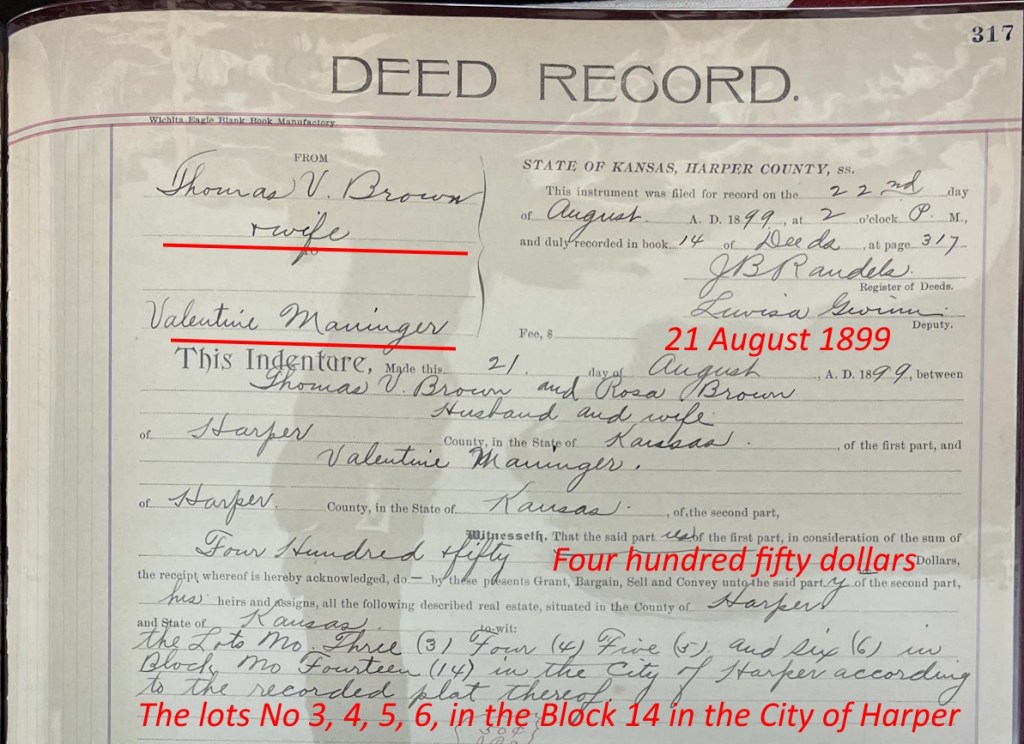 317
DEED RECORD.
Wichita Eagle Blank Book Manufactory
FROM
Thomas V. Brown
& wife
TO
Valentine Maninger
STATE OF KANSAS, HARPER COUNTY, ss.
This instrument was filed for record on the 22nd day
of August A. D. 1899, at 2 o'clock P. M.,
and duly recorded in book 14 of Deeds, at page 317
J B Randels.
Register of Deeds.
Luvisa
Deputy.
Fee, $
21 August 1899
This Indenture, Made this 21. day of August, A. D. 1899, between
Thomas V. Brown and Rosa Brown
Husband and wife
of Harper County, in the State of Kansas. , of the first part, and
Valentine Maninger.
of Harper County, in the State of Kansas. , of the second part,
Witnesseth, That the said part ies of the first part, in consideration of the sum of
Four Hundred & fifty Dollars,
Four hundred fifty dollars
the receipt whereof is hereby acknowledged, do — by these presents Grant, Bargain, Sell and Convey unto the said party of the second part,
his heirs and assigns, all the following described real estate, situated in the County of Harper
and State of Kansas to-wit:
the Lots No Three (3) Four (4) Five (5) and six (6) in
Block No Fourteen (14) in the City of Harper according
to the recorded plat thereof
The lots No 3, 4, 5, 6, in the Block 14 in the City of Harper